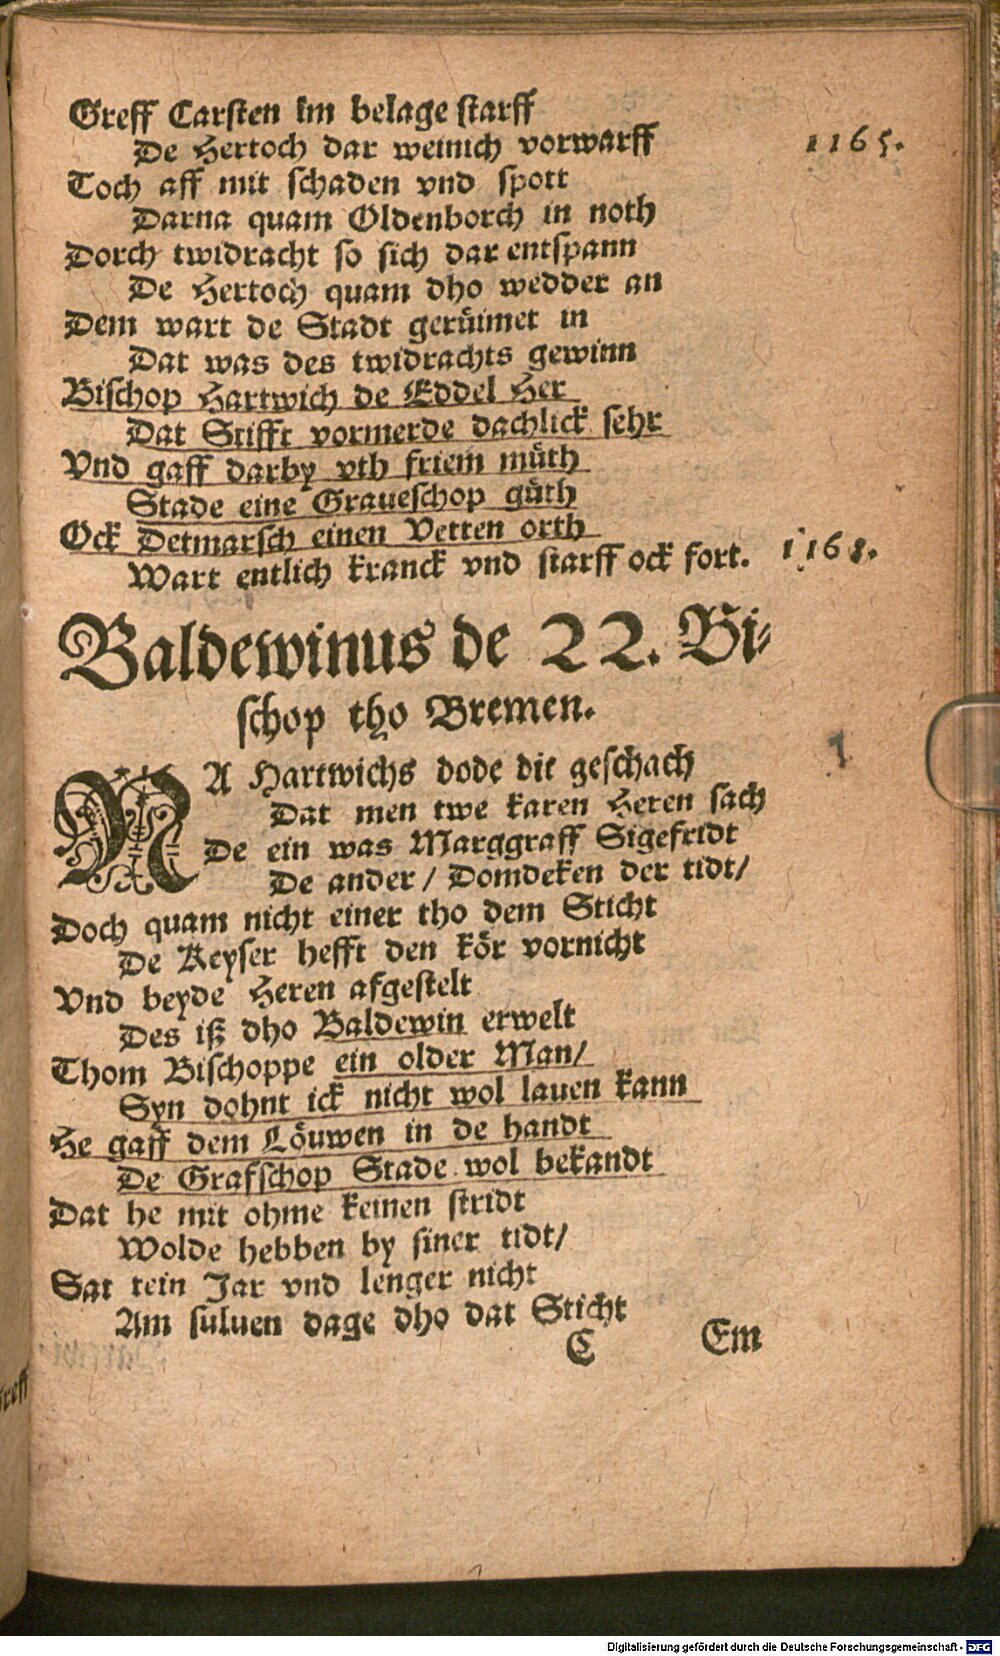 Greff Carsten im belage starff
De Hertoch dar weinich vorwarff 1165.
Toch aff mit schaden vnd spott
Darna quam Oldenborch in noth
Dorch twidracht so sich dar entspann
De Hertoch quam dho wedder an
Dem wart de Stadt gerümet in
Dat was des twidrachts gewinn
Bischop Hartwich de Eddel Her
Dat Stifft vormerde dachlick sehr
Vnd gaff darby vth friem müth
Stade eine Graueschop güth
Ock Detmarsch einen Vetten orth
Wart entlich kranck vnd starff ock fort. 1168.
Baldewinus de 22. Bi-
schop tho Bremen.
NA Hartwichs dode dit geschach
Dat men twe karen Heren sach
De ein was Marggraff Sigefridt
De ander / Domdeken der tidt/
Doch quam nicht einer tho dem Sticht
De Keyser hefft den kör vornicht
Vnd beyde Heren afgestelt
Des iß dho Baldewin erwelt
Thom Bischoppe ein older Man/
Syn dohnt ick nicht wol lauen kann
He gaff dem Löuwen in de handt
De Grafschop Stade wol bekandt
Dat he mit ohme keinen stridt
Wolde hebben by siner tidt/
Sat tein Jar vnd lenger nicht
Am suluen dage dho dat Sticht
C Em
Digitalisierung gefördert durch die Deutsche Forschungsgemeinschaft - DFG